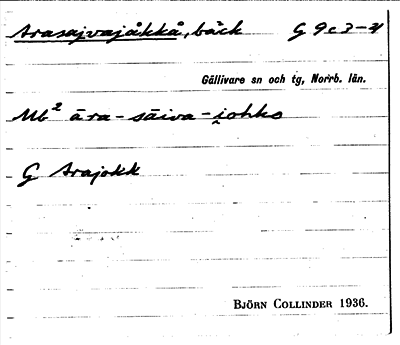 Arasajvajåkkå, bäck G 9c3-4
Gällivare sn och tg, Norrb. län.
Mb² āra-sāiva-i̯ohko
G Arajokk
BJÖRN COLLINDER 1936.